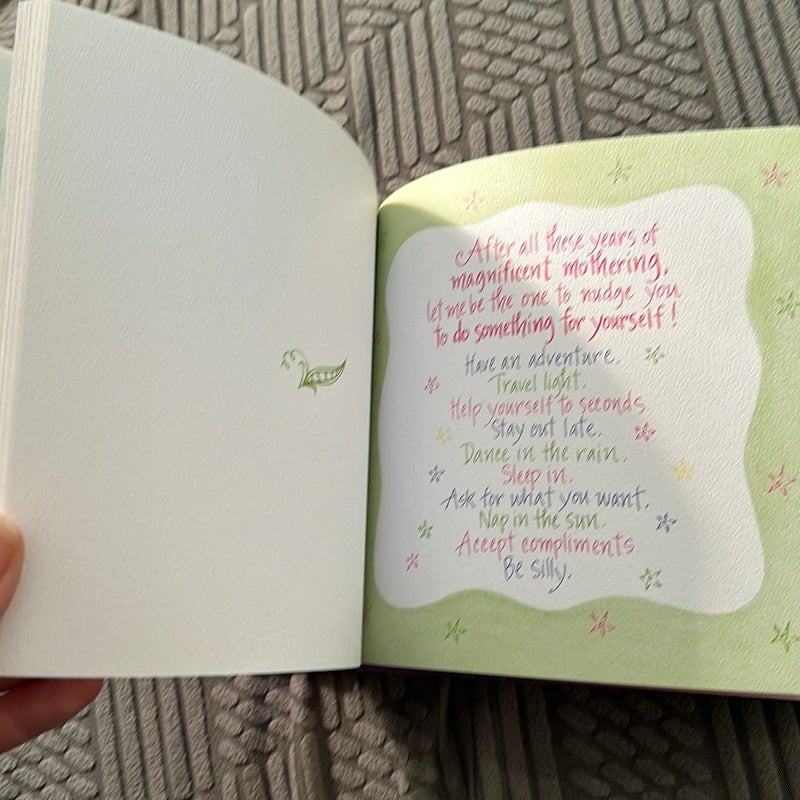 After all these years of
magnificent mothering,
let me be the one to nudge you
to do something for yourself!
Have an adventure.
Travel light.
Help yourself to seconds.
Stay out late.
Dance in the rain.
Sleep in.
Ask for what you want.
Nap in the sun.
Accept compliments.
Be silly.